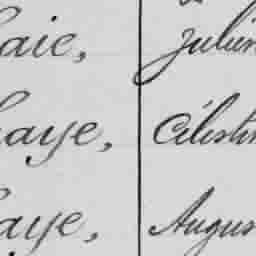 aie, Julien
haye, Célestin
haye, Augus